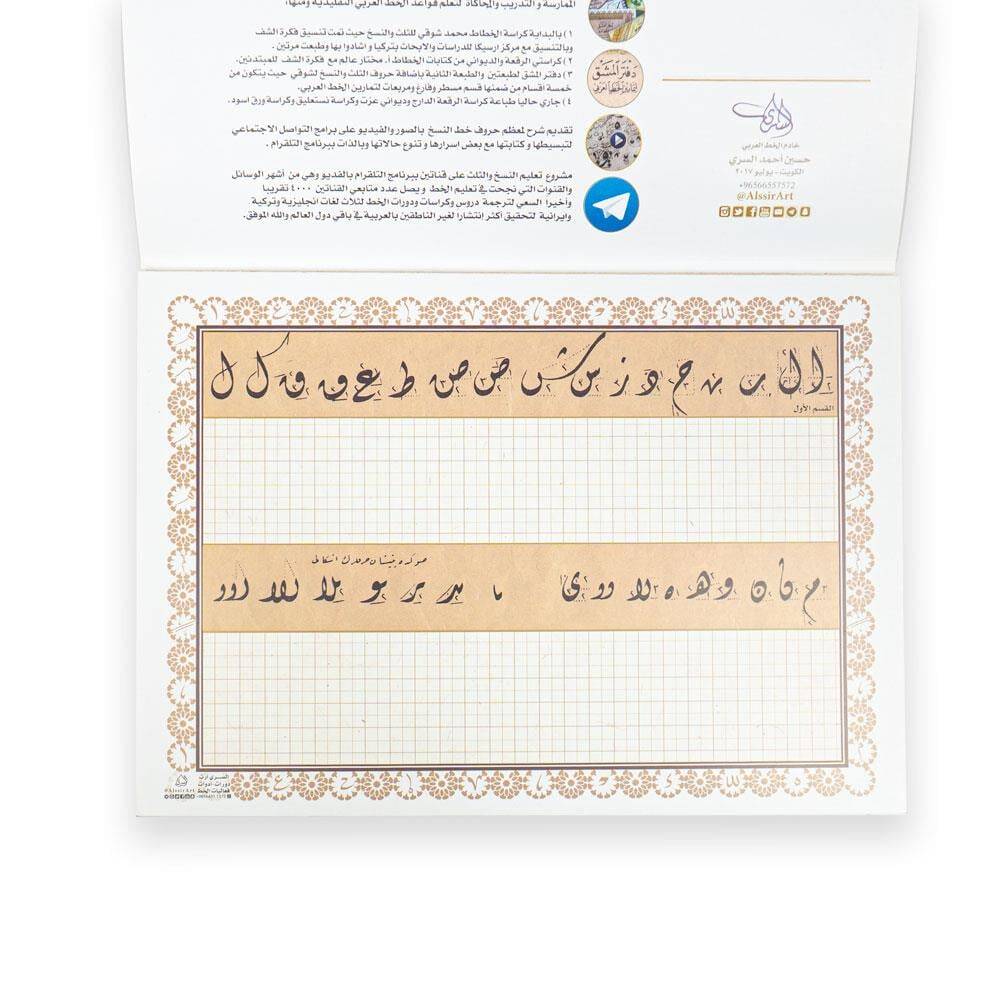 الممارسة والتدريب والمحاكاة لتعلم قواعد الخط العربي التقليدية ومنها،
١) بالبداية كراسة الخطاط محمد شوقي للثلث والنسخ حيث تمت تنسيق فكرة الشف
وبالتنسيق مع مركز ارسيكا للدراسات والابحات بتركيا و اشادوا بها وطبعت مرتين .
٢) كراستي الرقعة والديواني من كتابات الخطاط أ. مختار عالم مع فكرة الشف للمبتدئين.
٣) دفتر المشق لطبعتين والطبعة الثانية بإضافة حروف الثلث والنسخ لشوقي حيث يتكون من
خمسة اقسام من ضمنها قسم مسطر وفارغ ومربعات لتمارين الخط العربي.
٤) جاري حاليا طباعة كراسة الرقعة الدارج وديواني عزت وكراسة نستعليق وكراسة ورق اسود.
تقديم شرح لمعظم حروف خط النسخ بالصور والفيديو على برامج التواصل الاجتماعي
لتبسيطها و كتابتها مع بعض إسرارها و تنوع حالاتها وبالذات ببرنامج التلقرام .
مشروع تعليم النسخ والثلث على قناتين ببرنامج التلقرام بالفديو وهي من أشهر الوسائل
والقنوات التي نجحت في تعليم الخط و يصل عدد متابعي القناتين ٤٠٠٠ تقريبا
وأخيرا السعي لترجمة دروس وكراسات ودورات الخط لثلاث لغات انجليزية وتركية
وايرانية لتحقيق أكثر انتشارا لغير الناطقين بالعربية في باقي دول العالم والله الموفق.
دفتر المشق
لتمارين الخط العربي
السري
خادم الخط العربي
حسين أحمد السري
الكويت - يوليو ٢٠١٧
+96566557572
@AlssirArt
ا ل ب ں ح د ز س ش ص ض ط ع ف ق ك ل
القسم الأول
م ن ن و ه ه لا و و ى
السري ارت
دورات - أدوات
فعاليات الخط
@AlssirArt